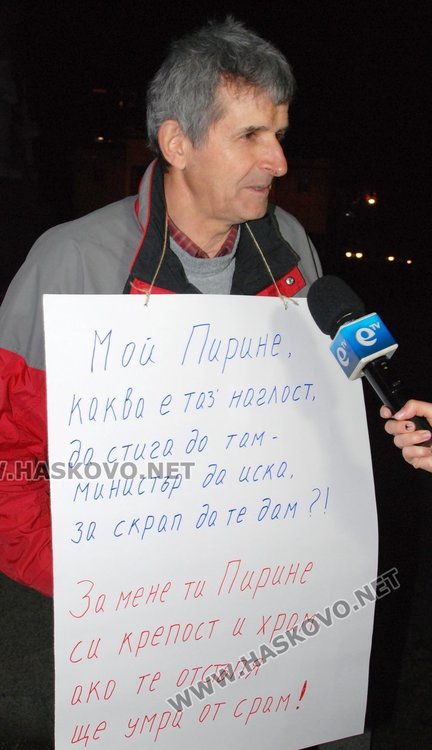 Мой Пирине,
каква е таз наглост,
да стига до там -
министър да иска,
за скрап да те дам?!
За мене ти Пирине
си крепост и храм
ако те отстъпя
ще умра от срам!
eTV
WWW.HASKOVO.NET
WWW.HASKOVO.NET